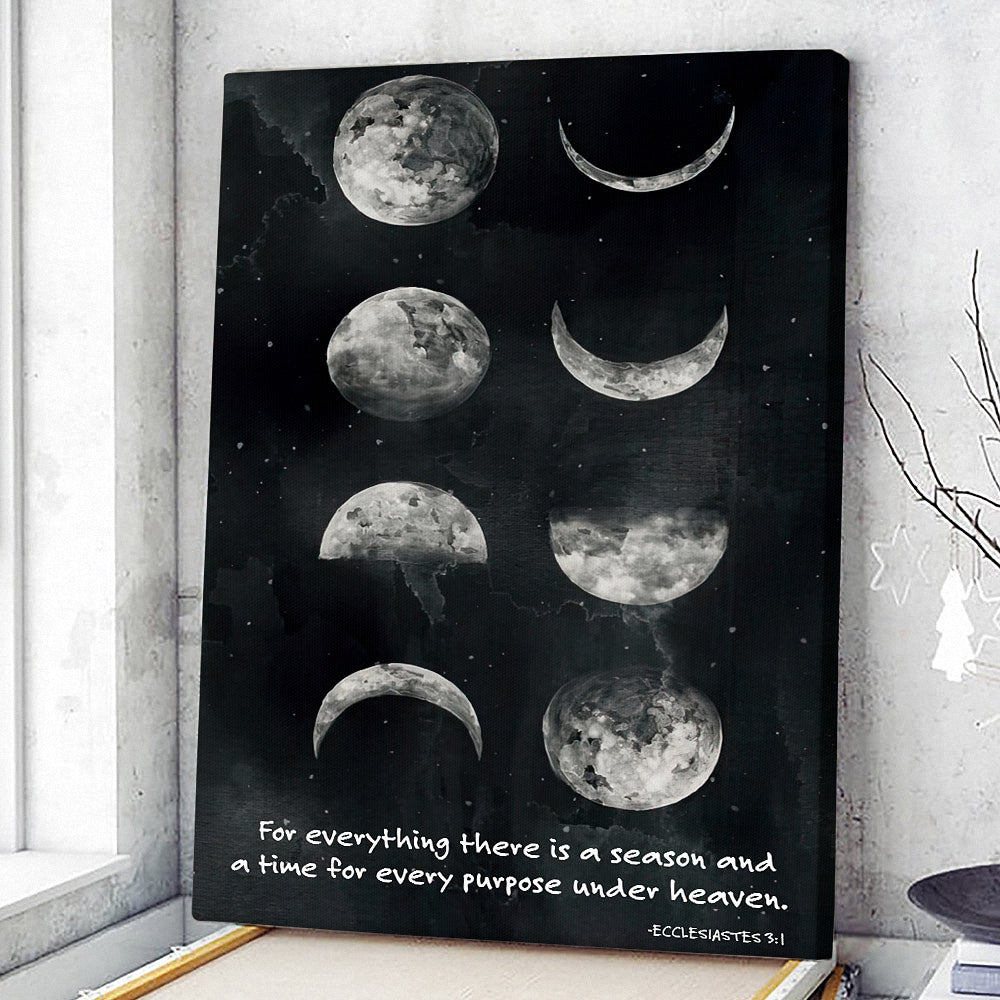 For everything there is a season and
a time for every purpose under heaven.
-ECCLESIASTES 3:1